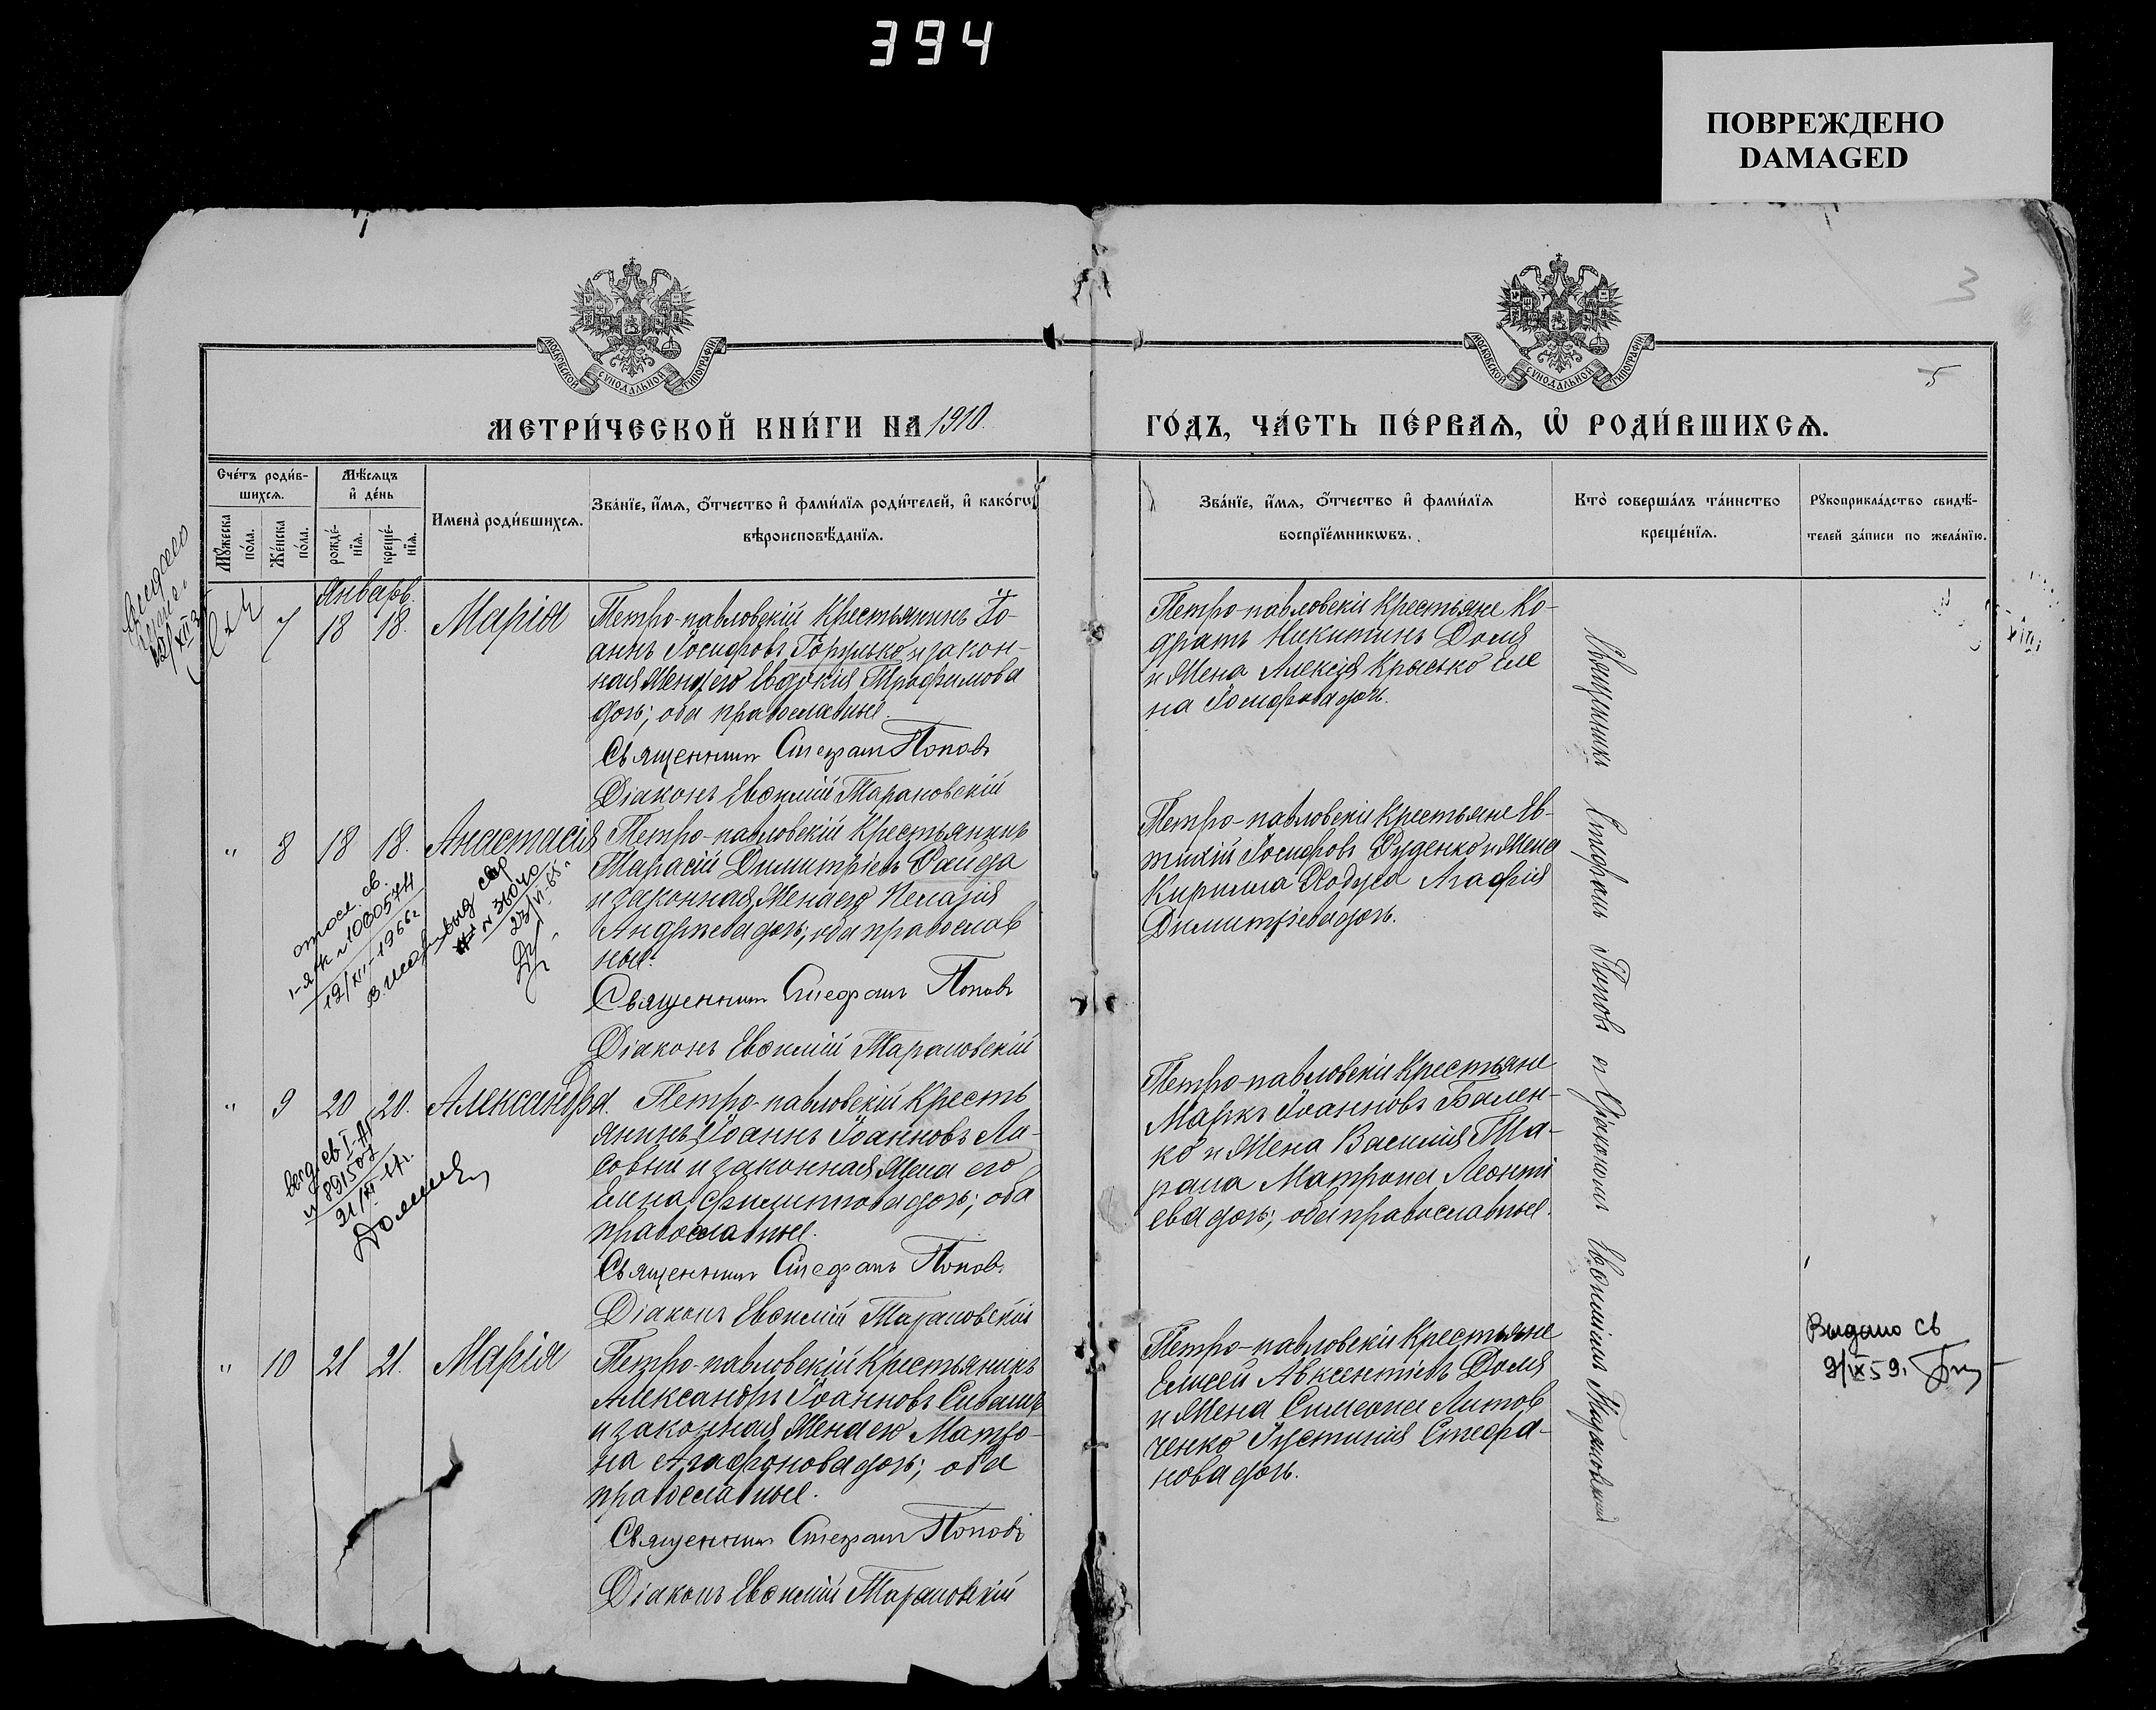 394
ПОВРЕЖДЕНО
DAMAGED
3
5
МОСКОВСКОЙ СУНОДАЛЬНОЙ ТИПОГРАФІИ
МОСКОВСКОЙ СУНОДАЛЬНОЙ ТИПОГРАФІИ
МЕТРИ́ЧЕСКОЙ КНИ́ГИ НА 1910.
ГО́ДЪ, ЧА́СТЬ ПЕ́РВАѦ, Ѡ҆ РОДИ́ВШИХСѦ.
Сче́тъ роди́в-
шихсѧ.
Мꙋ́жеска по́ла.
Же́нска по́ла.
Мѣ́сѧцъ
и҆ де́нь
рожде́-
нїѧ.
креще́-
нїѧ.
И҆мена̀ роди́вшихсѧ.
Зва́нїе, и҆́мѧ, ѻ҆́тчество и҆ фами́лїѧ роди́телей, и҆ како́гѡ
вѣроисповѣ́данїѧ.
Зва́нїе, и҆́мѧ, ѻ҆́тчество и҆ фами́лїѧ
воспрїе́мникѡвъ.
Кто̀ соверша́лъ та́инство
креще́нїѧ.
Рꙋкоприкла́дство свидѣ́-
телей за́писи по жела́нїю.
Январь.
7 18 18. Марія
Петро-павловскій Крестьянинъ Іо-
аннъ Іосифовъ Горулько и закон-
ная жена его Евдокія Трофимова
дочь; оба православные.
Священникъ Стефанъ Поповъ
Діаконъ Евѳимій Тарановскій
Петро-павловскіе Крестьяне Ко-
дратъ Никитинъ Доля
и жена Алексія Крысько Еле
на Іосифова дочь.
" 8 18 18. Анастасія
Петро-павловскій Крестьянинъ
Тарасій Димитріевъ
и законная жена его Пелагія
Андреева дочь; оба православ
ные.
Священникъ Стефанъ Поповъ
Діаконъ Евѳимій Тарановскій
Петро-павловскіе Крестьяне Ев-
тихій Іосифовъ Руденко и жена
Кирилла Агафія
Димитріева дочь.
23/VI-65.
" 9 20 20. Александра.
Петро-павловскій Кресть
янинъ Іоаннъ Іоанновъ Ли-
совый и законная жена его
Елена Филиппова дочь; оба
православные.
Священникъ Стефанъ Поповъ
Діаконъ Евѳимій Тарановскій
Петро-павловскіе Крестьяне
Маркъ Іоанновъ Бален-
ко и жена Василія Та-
рана Матрона Леонті
ева дочь; оба православные.
" 10 21 21. Марія
Петро-павловскій Крестьянинъ
Александръ Іоанновъ Сивашъ
и законная жена его Матро-
на Агафонова дочь; оба
православные.
Священникъ Стефанъ Поповъ
Діаконъ Евѳимій Тарановскій
Петро-павловскіе Крестьяне
Елисей Авксентіевъ Доля
и жена Симеона Литов
ченко Іустинія Стефа-
нова дочь.
Священникъ Стефанъ Поповъ и Діаконъ Евѳимій Тарановскій
Выдано св
9/IX 59.